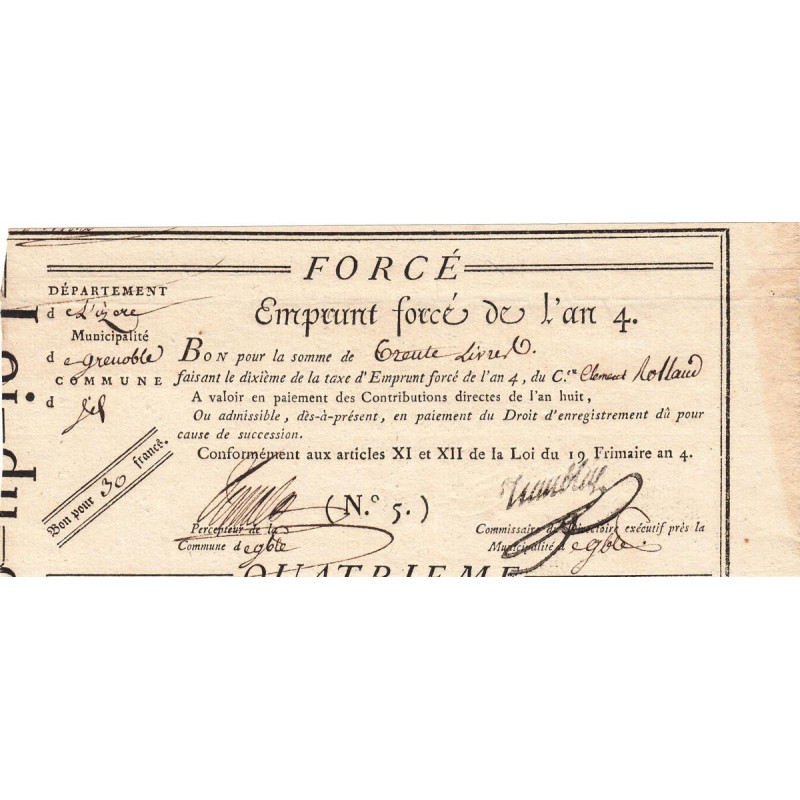 FORCÉ
DÉPARTEMENT
d e L'izere
Municipalité
d e grenoble
COMMUNE
d
Bon pour 30 francs.
Emprunt forcé de l'an 4.
BON pour la somme de Trente Livres.
faisant le dixième de la taxe d'Emprunt forcé de l'an 4, du C.en Clement Rolland
A valoir en paiement des Contributions directes de l'an huit,
Ou admissible, dès-à-présent, en paiement du Droit d'enregistrement dû pour
cause de succession.
Conformément aux articles XI et XII de la Loi du 19 Frimaire an 4.
(N.o 5.)
Percepteur de la
Commune d e gble
Commissaire du Directoire exécutif près la
Municipalité d e gble
QUATRIEME